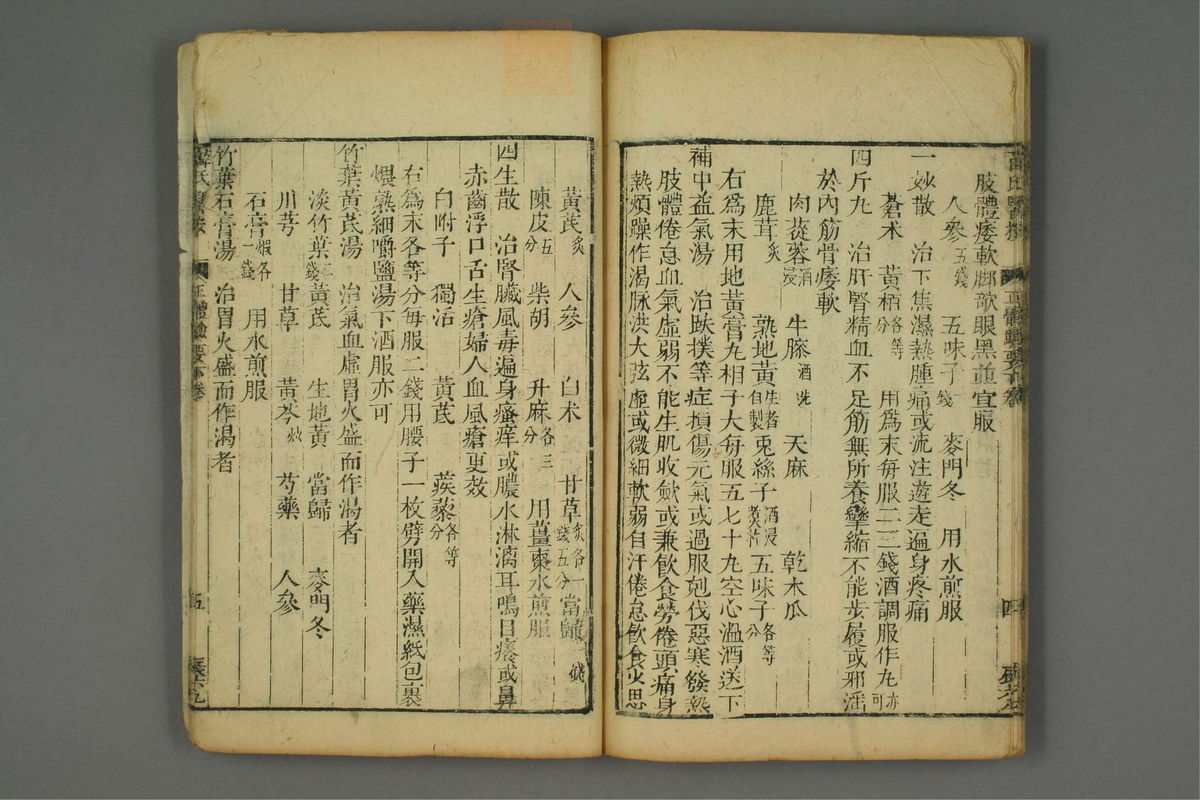 肢體痿軟脚欹眼黑並宜服
人參五錢 五味子錢 麥門冬 用水煎服
一妙散 治下焦濕熱腫痛或流注遊走遍身疼痛
蒼术 黄栢各等分 用爲末每服二三錢酒調服作丸亦可
四斤丸 治肝腎精血不足筋無所養攣縮不能步履或邪淫
於內筋骨痿軟
肉蓯蓉酒浸 牛膝酒洗 天麻 乾木瓜
鹿茸炙 熟地黄生者自製 兎絲子酒浸煑 五味子各等分
右爲末用地黄膏丸相子大每服五七十丸空心溫酒送下
補中益氣湯 治跌撲等症損傷元氣或過服剋伐惡寒發熱
肢體倦怠血氣虛弱不能生肌收歛或兼飲食勞倦頭痛身
熱煩躁作渴脉洪大弦虛或微細軟弱自汗倦怠飲食少思
黃芪炙 人參 白术 甘草炙各一錢五分 當歸錢
陳皮五分 柴胡 升麻各三分 用薑棗水煎服
四生散 治腎臓風毒遍身瘙痒或膿水淋漓耳鳴目癢或鼻
赤齒浮口舌生瘡婦人血風瘡更效
白附子 獨活 黃芪 蒺藜各等分
右爲末各等分每服二錢用腰子一枚劈開入藥濕紙包裹
煨熟細嚼鹽湯下酒服亦可
竹葉黃芪湯 治氣血虛胃火盛而作渴者
淡竹葉二錢 黃芪 生地黃 當歸 麥門冬
川芎 甘草 黃芩炒 芍藥 人參
石膏煅各一錢 用水煎服
竹葉石膏湯 治胃火盛而作渴者
正體驗要下卷
五